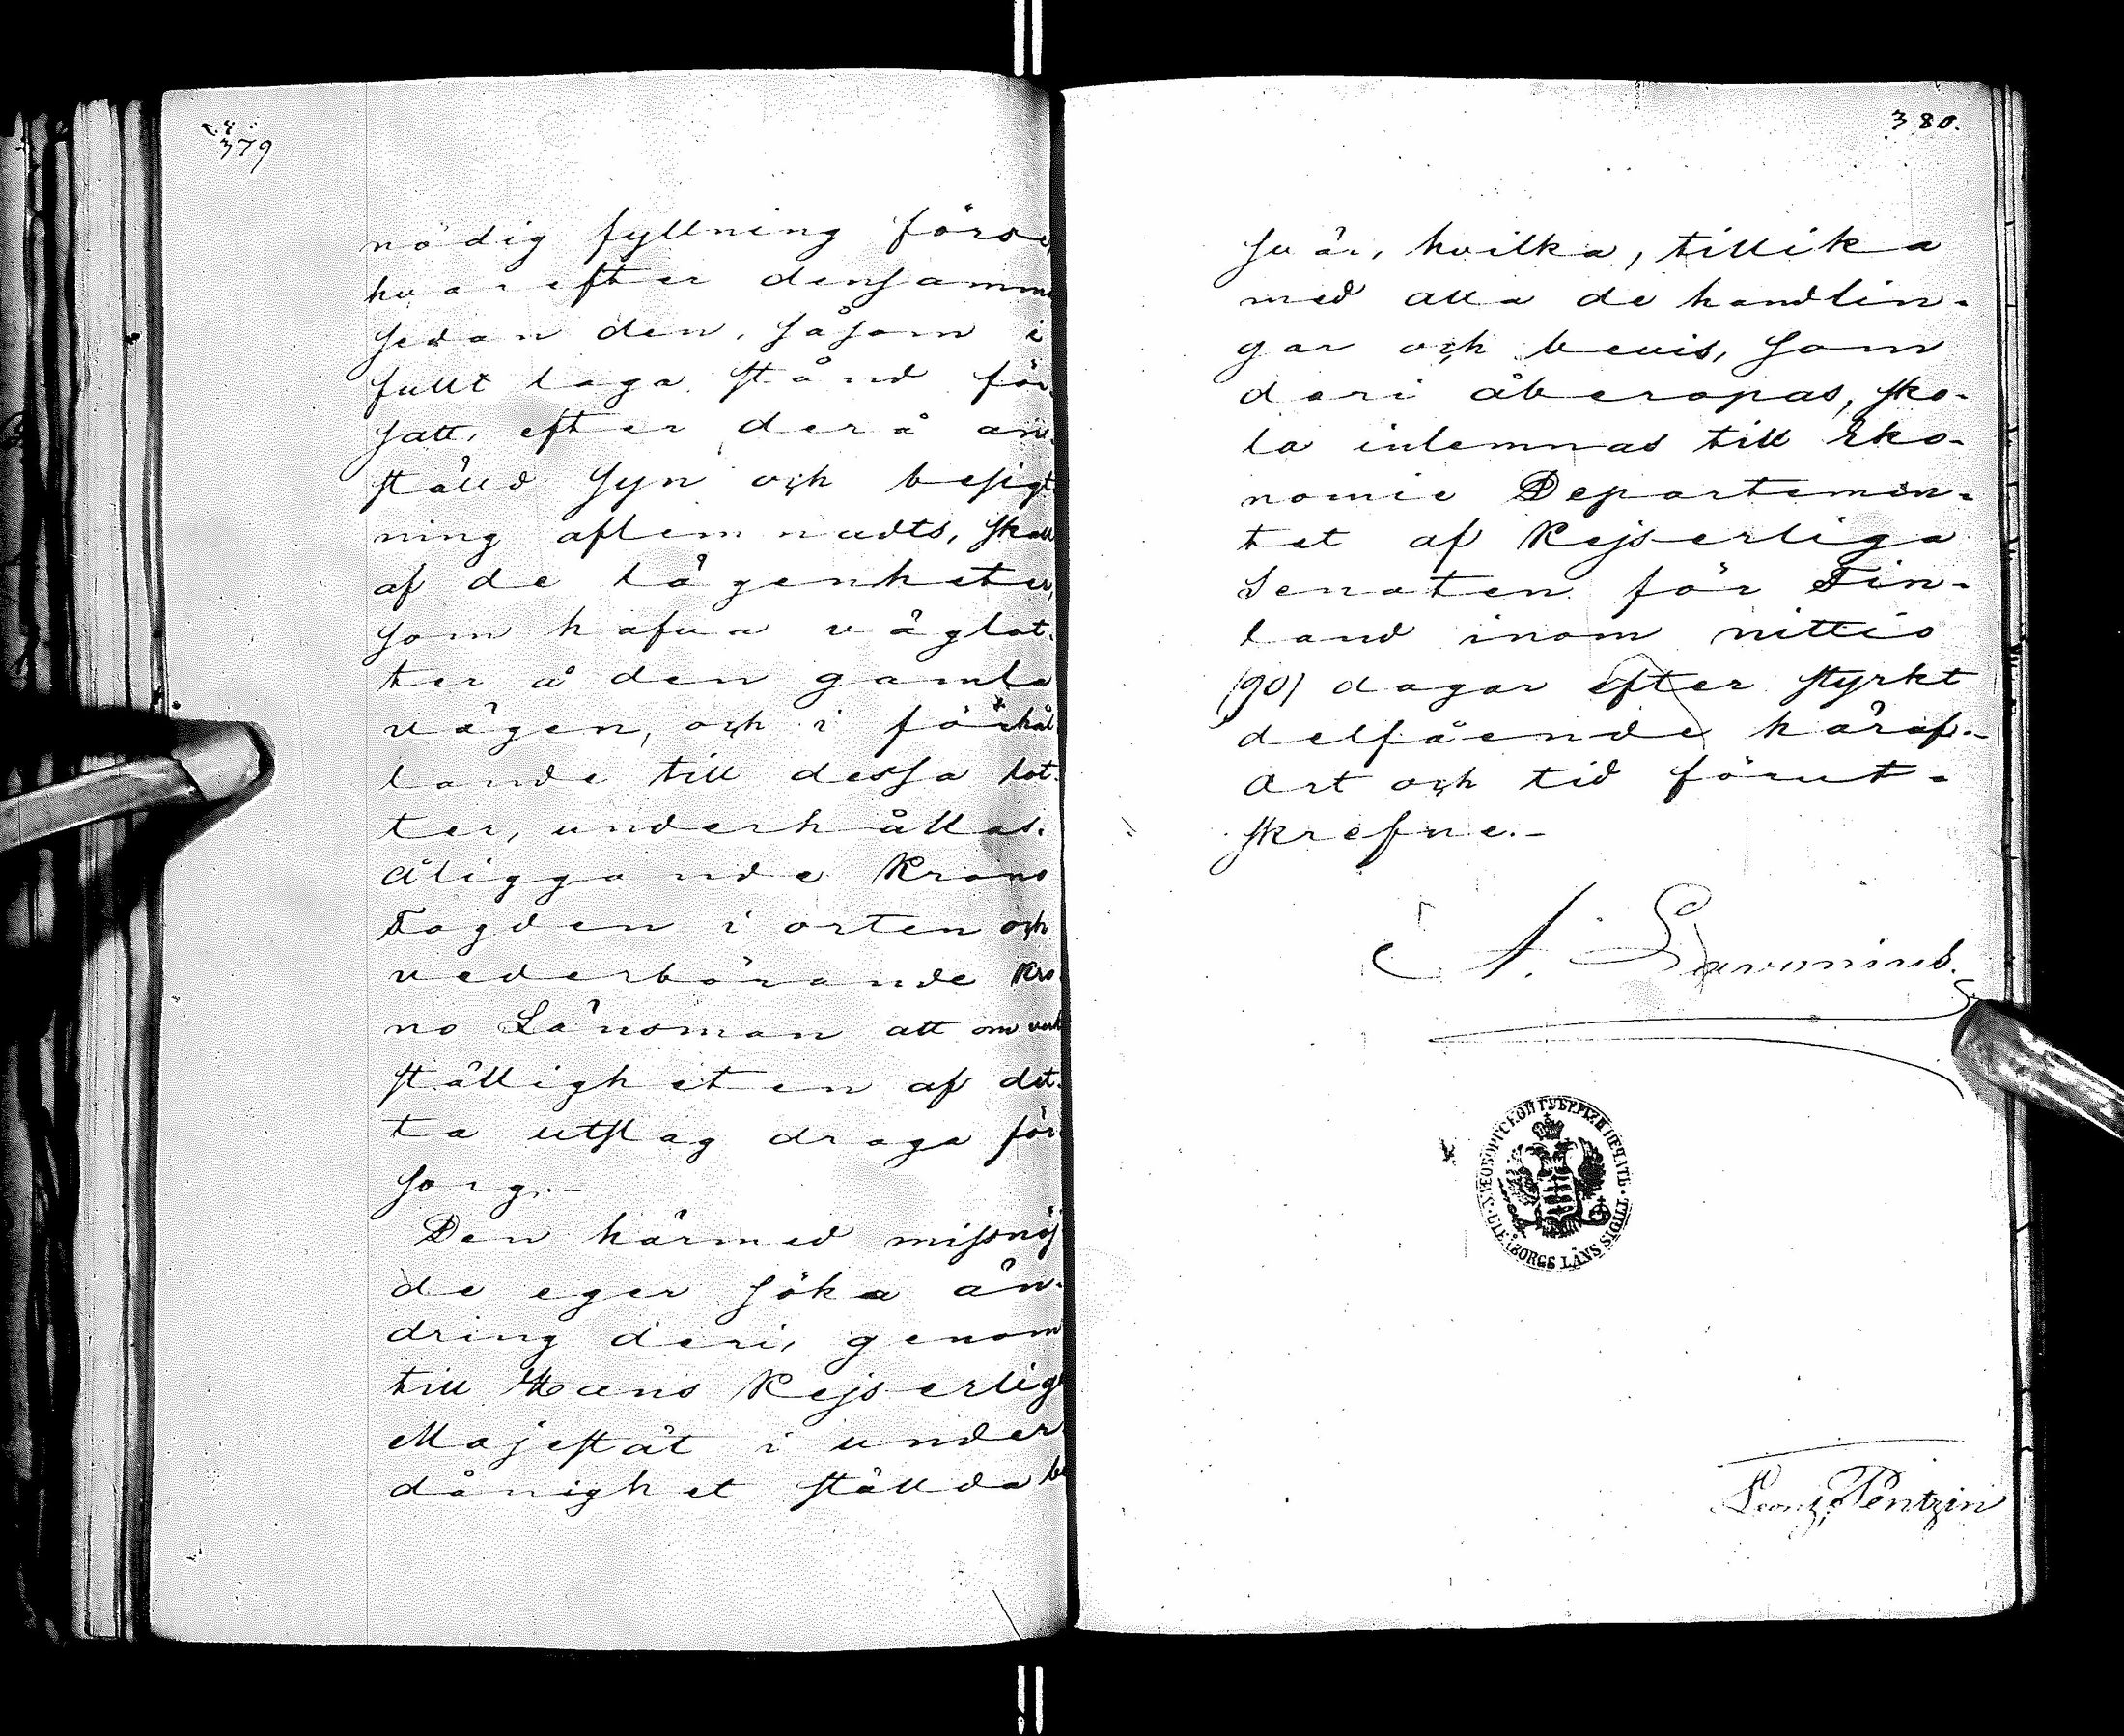 379
nödig fyllning förse,
hvarefter densamma
sedan den, såsom i
fullt laga stånd för-
satt, efter derå an-
ställd syn och besigt-
ning aflemnadts, skall
af de lägenheter,
som hafva väglot-
ter å den gamla
vägen, och i förhål-
lande till dessa lot-
ter, underhållas.
Åliggande Krono
Fogden i orten och
vederbörande Kro-
no Länsman att om verk
ställigheten af det-
ta utslag draga för
sorg.-
Den härmed missnöj
de eger söka än-
dring deri, genom
till Hans Kejserliga
Majestät i under
dånighet ställda be
380.
svär, hvilka, tillika
med alla de handlin-
gar och bevis, som
deri åberopas, sko-
la inlemnas till Eko-
nomie Departemen-
tet af Kejserliga
Senaten för Fin-
land inom nittio
(90) dagar efter styrkt
delfående häraf.-
Ort och tid förut-
skrefne.-
УЛЕОБОРГСКОЙ ГУБЕРНІИ ПЕЧАТЬ
ULEÅBORGS LÄNS SIGILL
Pentzin